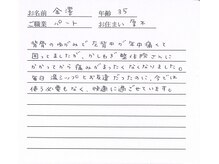 お名前 金澤 年齢 35
ご職業 パート お住まい 厚木
背骨のゆがみで左背中が年中痛くて
困ってましたが、かしわぎ整体院さんに
かかってから痛みがまったくなくなりました。
毎日 湿シップとお友達だったのに、今では
使う必要もなく、快適に過ごせています。